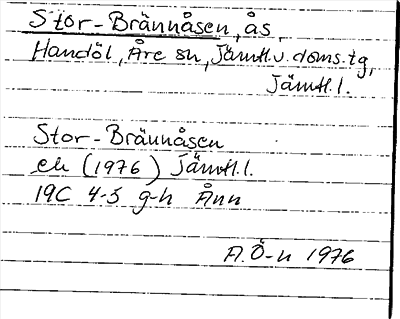 Stor-Brännåsen, ås,
Handöl, Åre sn, Jämtl.v.doms.tg,
Jämtl.l.
Stor-Brännåsen
ek (1976) Jämtl.l.
19C 4-5 g-h Ånn
A.Ö-n 1976